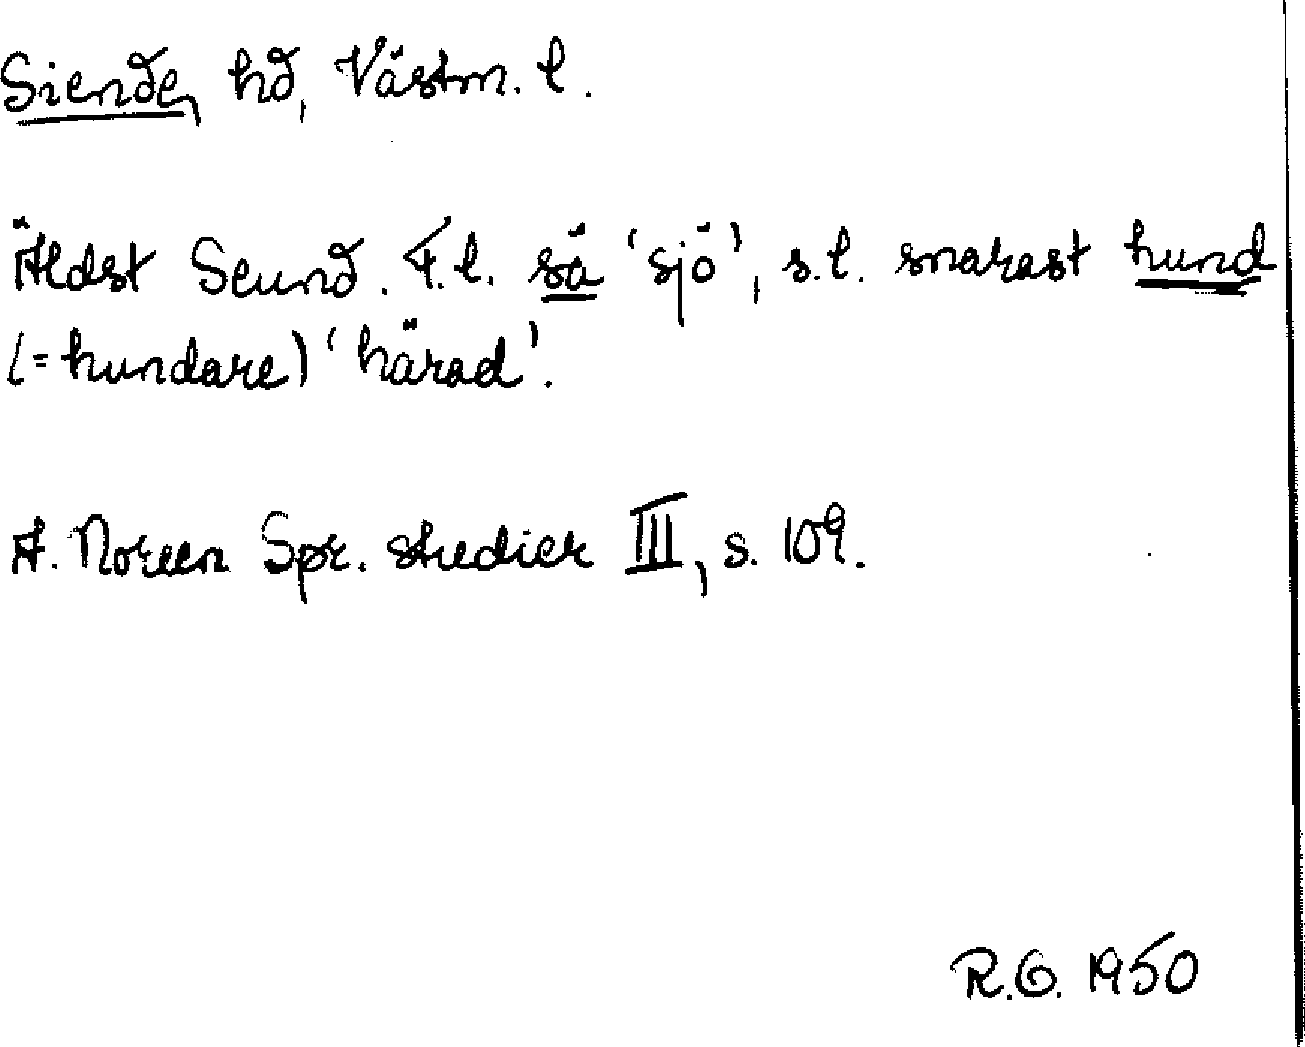 Siende, hd, Västm. l.
Äldst Seund. F.l. sä 'sjö', s.l. snarast hund
(= hundare) 'härad'.
A. Noreen Spr. studier III, s. 109.
R.G. 1950